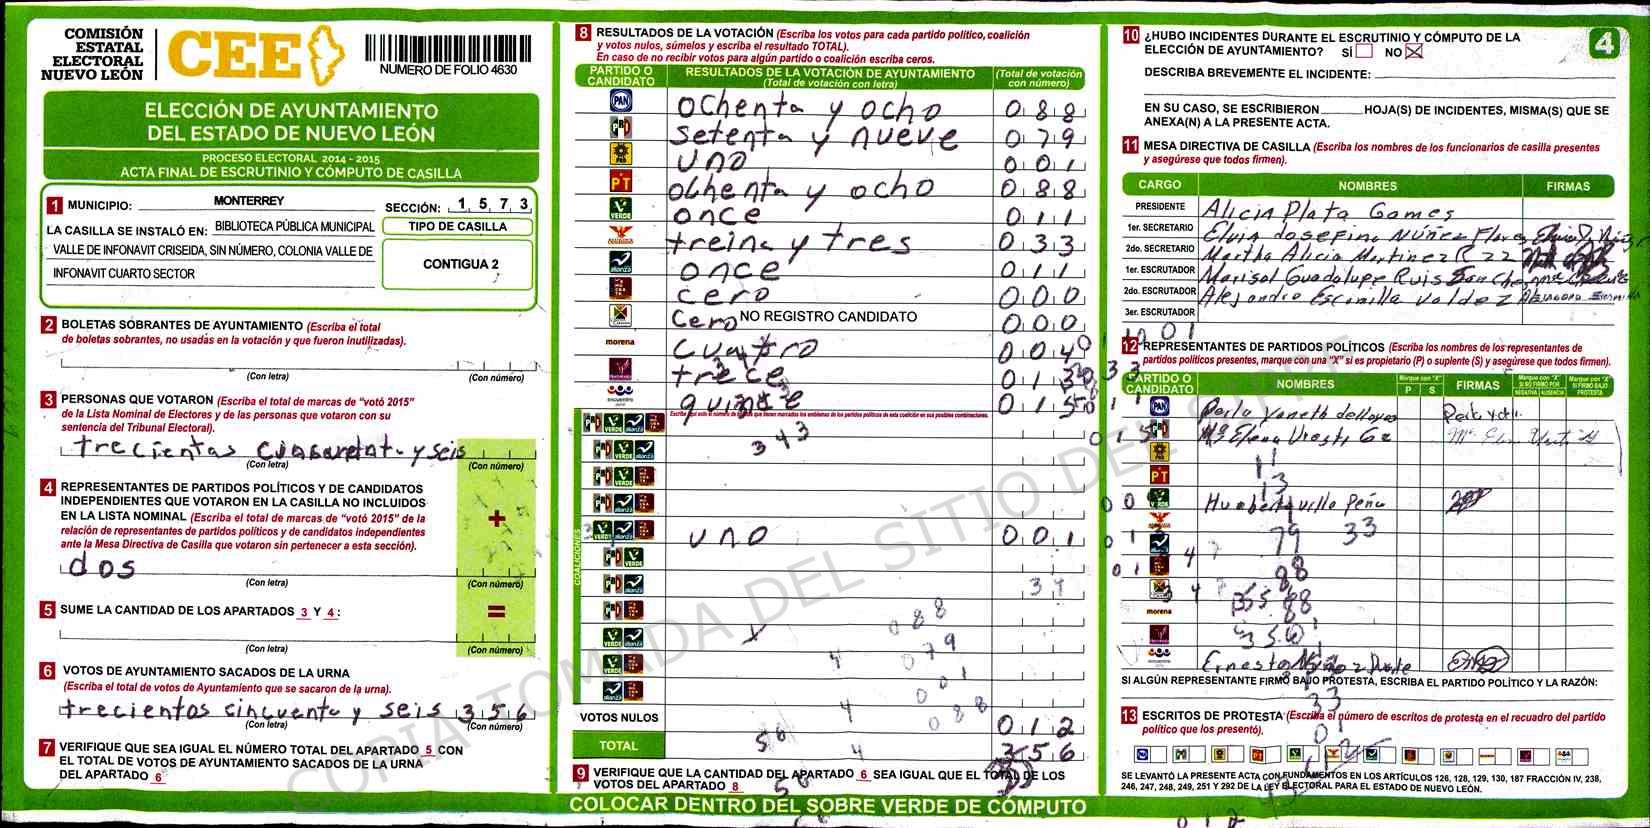 COMISIÓN
ESTATAL
ELECTORAL
NUEVO LEÓN
CEE
NUMERO DE FOLIO 4630
ELECCIÓN DE AYUNTAMIENTO
DEL ESTADO DE NUEVO LEÓN
PROCESO ELECTORAL 2014 - 2015
ACTA FINAL DE ESCRUTINIO Y CÓMPUTO DE CASILLA
1 MUNICIPIO: MONTERREY
SECCIÓN: 1 5 7 3
LA CASILLA SE INSTALÓ EN: BIBLIOTECA PÚBLICA MUNICIPAL
VALLE DE INFONAVIT CRISEIDA, SIN NÚMERO, COLONIA VALLE DE
INFONAVIT CUARTO SECTOR
TIPO DE CASILLA
CONTIGUA 2
2 BOLETAS SOBRANTES DE AYUNTAMIENTO (Escriba el total
de boletas sobrantes, no usadas en la votación y que fueron inutilizadas).
(Con letra) (Con número)
3 PERSONAS QUE VOTARON (Escriba el total de marcas de "votó 2015"
de la Lista Nominal de Electores y de las personas que votaron con su
sentencia del Tribunal Electoral).
trecientas y seis
(Con letra) (Con número)
4 REPRESENTANTES DE PARTIDOS POLÍTICOS Y DE CANDIDATOS
INDEPENDIENTES QUE VOTARON EN LA CASILLA NO INCLUIDOS
EN LA LISTA NOMINAL (Escriba el total de marcas de "votó 2015" de la
relación de representantes de partidos políticos y de candidatos independientes
ante la Mesa Directiva de Casilla que votaron sin pertenecer a esta sección).
+
dos
(Con letra) (Con número)
5 SUME LA CANTIDAD DE LOS APARTADOS 3 Y 4:
=
(Con letra) (Con número)
6 VOTOS DE AYUNTAMIENTO SACADOS DE LA URNA
(Escriba el total de votos de Ayuntamiento que se sacaron de la urna).
trecientos cincuenta y seis 3 5 6
(Con letra) (Con número)
7 VERIFIQUE QUE SEA IGUAL EL NÚMERO TOTAL DEL APARTADO 5 CON
EL TOTAL DE VOTOS DE AYUNTAMIENTO SACADOS DE LA URNA
DEL APARTADO 6
8 RESULTADOS DE LA VOTACIÓN (Escriba los votos para cada partido político, coalición
y votos nulos, súmelos y escriba el resultado TOTAL).
En caso de no recibir votos para algún partido o coalición escriba ceros.
PARTIDO O CANDIDATO
RESULTADOS DE LA VOTACIÓN DE AYUNTAMIENTO
(Total de votación con letra)
(Total de votación con número)
PAN ochenta y ocho 0 8 8
setenta y nueve 0 7 9
uno 0 0 1
PT ochenta y ocho 0 8 8
VERDE once 0 1 1
treina y tres 0 3 3
alianza once 0 1 1
cero 0 0 0
cero NO REGISTRO CANDIDATO 0 0 0
morena cuatro 0 0 4
trece 0 1 3
encuentro quince 0 1 5
COALICIONES
343
uno 0 0 1
34
088
079
001
088
VOTOS NULOS 0 1 2
TOTAL 356
9 VERIFIQUE QUE LA CANTIDAD DEL APARTADO 6 SEA IGUAL QUE EL TOTAL DE LOS
VOTOS DEL APARTADO 8
COLOCAR DENTRO DEL SOBRE VERDE DE CÓMPUTO
10 ¿HUBO INCIDENTES DURANTE EL ESCRUTINIO Y CÓMPUTO DE LA
ELECCIÓN DE AYUNTAMIENTO? SÍ NO X
4
DESCRIBA BREVEMENTE EL INCIDENTE:
EN SU CASO, SE ESCRIBIERON HOJA(S) DE INCIDENTES, MISMA(S) QUE SE
ANEXA(N) A LA PRESENTE ACTA.
11 MESA DIRECTIVA DE CASILLA (Escriba los nombres de los funcionarios de casilla presentes
y asegúrese que todos firmen).
CARGO NOMBRES FIRMAS
PRESIDENTE Alicia Plata Gomes
1er. SECRETARIO Elvia Josefina Núñez Flores
2do. SECRETARIO Martha Alicia Martinez R
1er. ESCRUTADOR Marisol Guadalupe Ruis Sanche
2do. ESCRUTADOR Alejandro Escanilla Valdez
3er. ESCRUTADOR
12 REPRESENTANTES DE PARTIDOS POLÍTICOS (Escriba los nombres de los representantes de
partidos políticos presentes, marque con una "X" si es propietario (P) o suplente (S) y asegúrese que todos firmen).
PARTIDO O CANDIDATO NOMBRES
Marque con "X"
P S
FIRMAS
Marque con "X" SI NO FIRMÓ POR
NEGATIVA AUSENCIA
Marque con "X" SI FIRMÓ BAJO PROTESTA
PAN Perla Yaneth
Mª Elena
11
PT 13
VERDE Peña
79 33
88
88
morena
Ernesto
SI ALGÚN REPRESENTANTE FIRMÓ BAJO PROTESTA, ESCRIBA EL PARTIDO POLÍTICO Y LA RAZÓN:
33
13 ESCRITOS DE PROTESTA (Escriba el número de escritos de protesta en el recuadro del partido
político que los presentó).
SE LEVANTÓ LA PRESENTE ACTA CON FUNDAMENTOS EN LOS ARTÍCULOS 126, 128, 129, 130, 187 FRACCIÓN IV, 238,
246, 247, 248, 249, 251 Y 292 DE LA LEY ELECTORAL PARA EL ESTADO DE NUEVO LEÓN.
COPIA TOMADA DEL SITIO DEL SIPRE